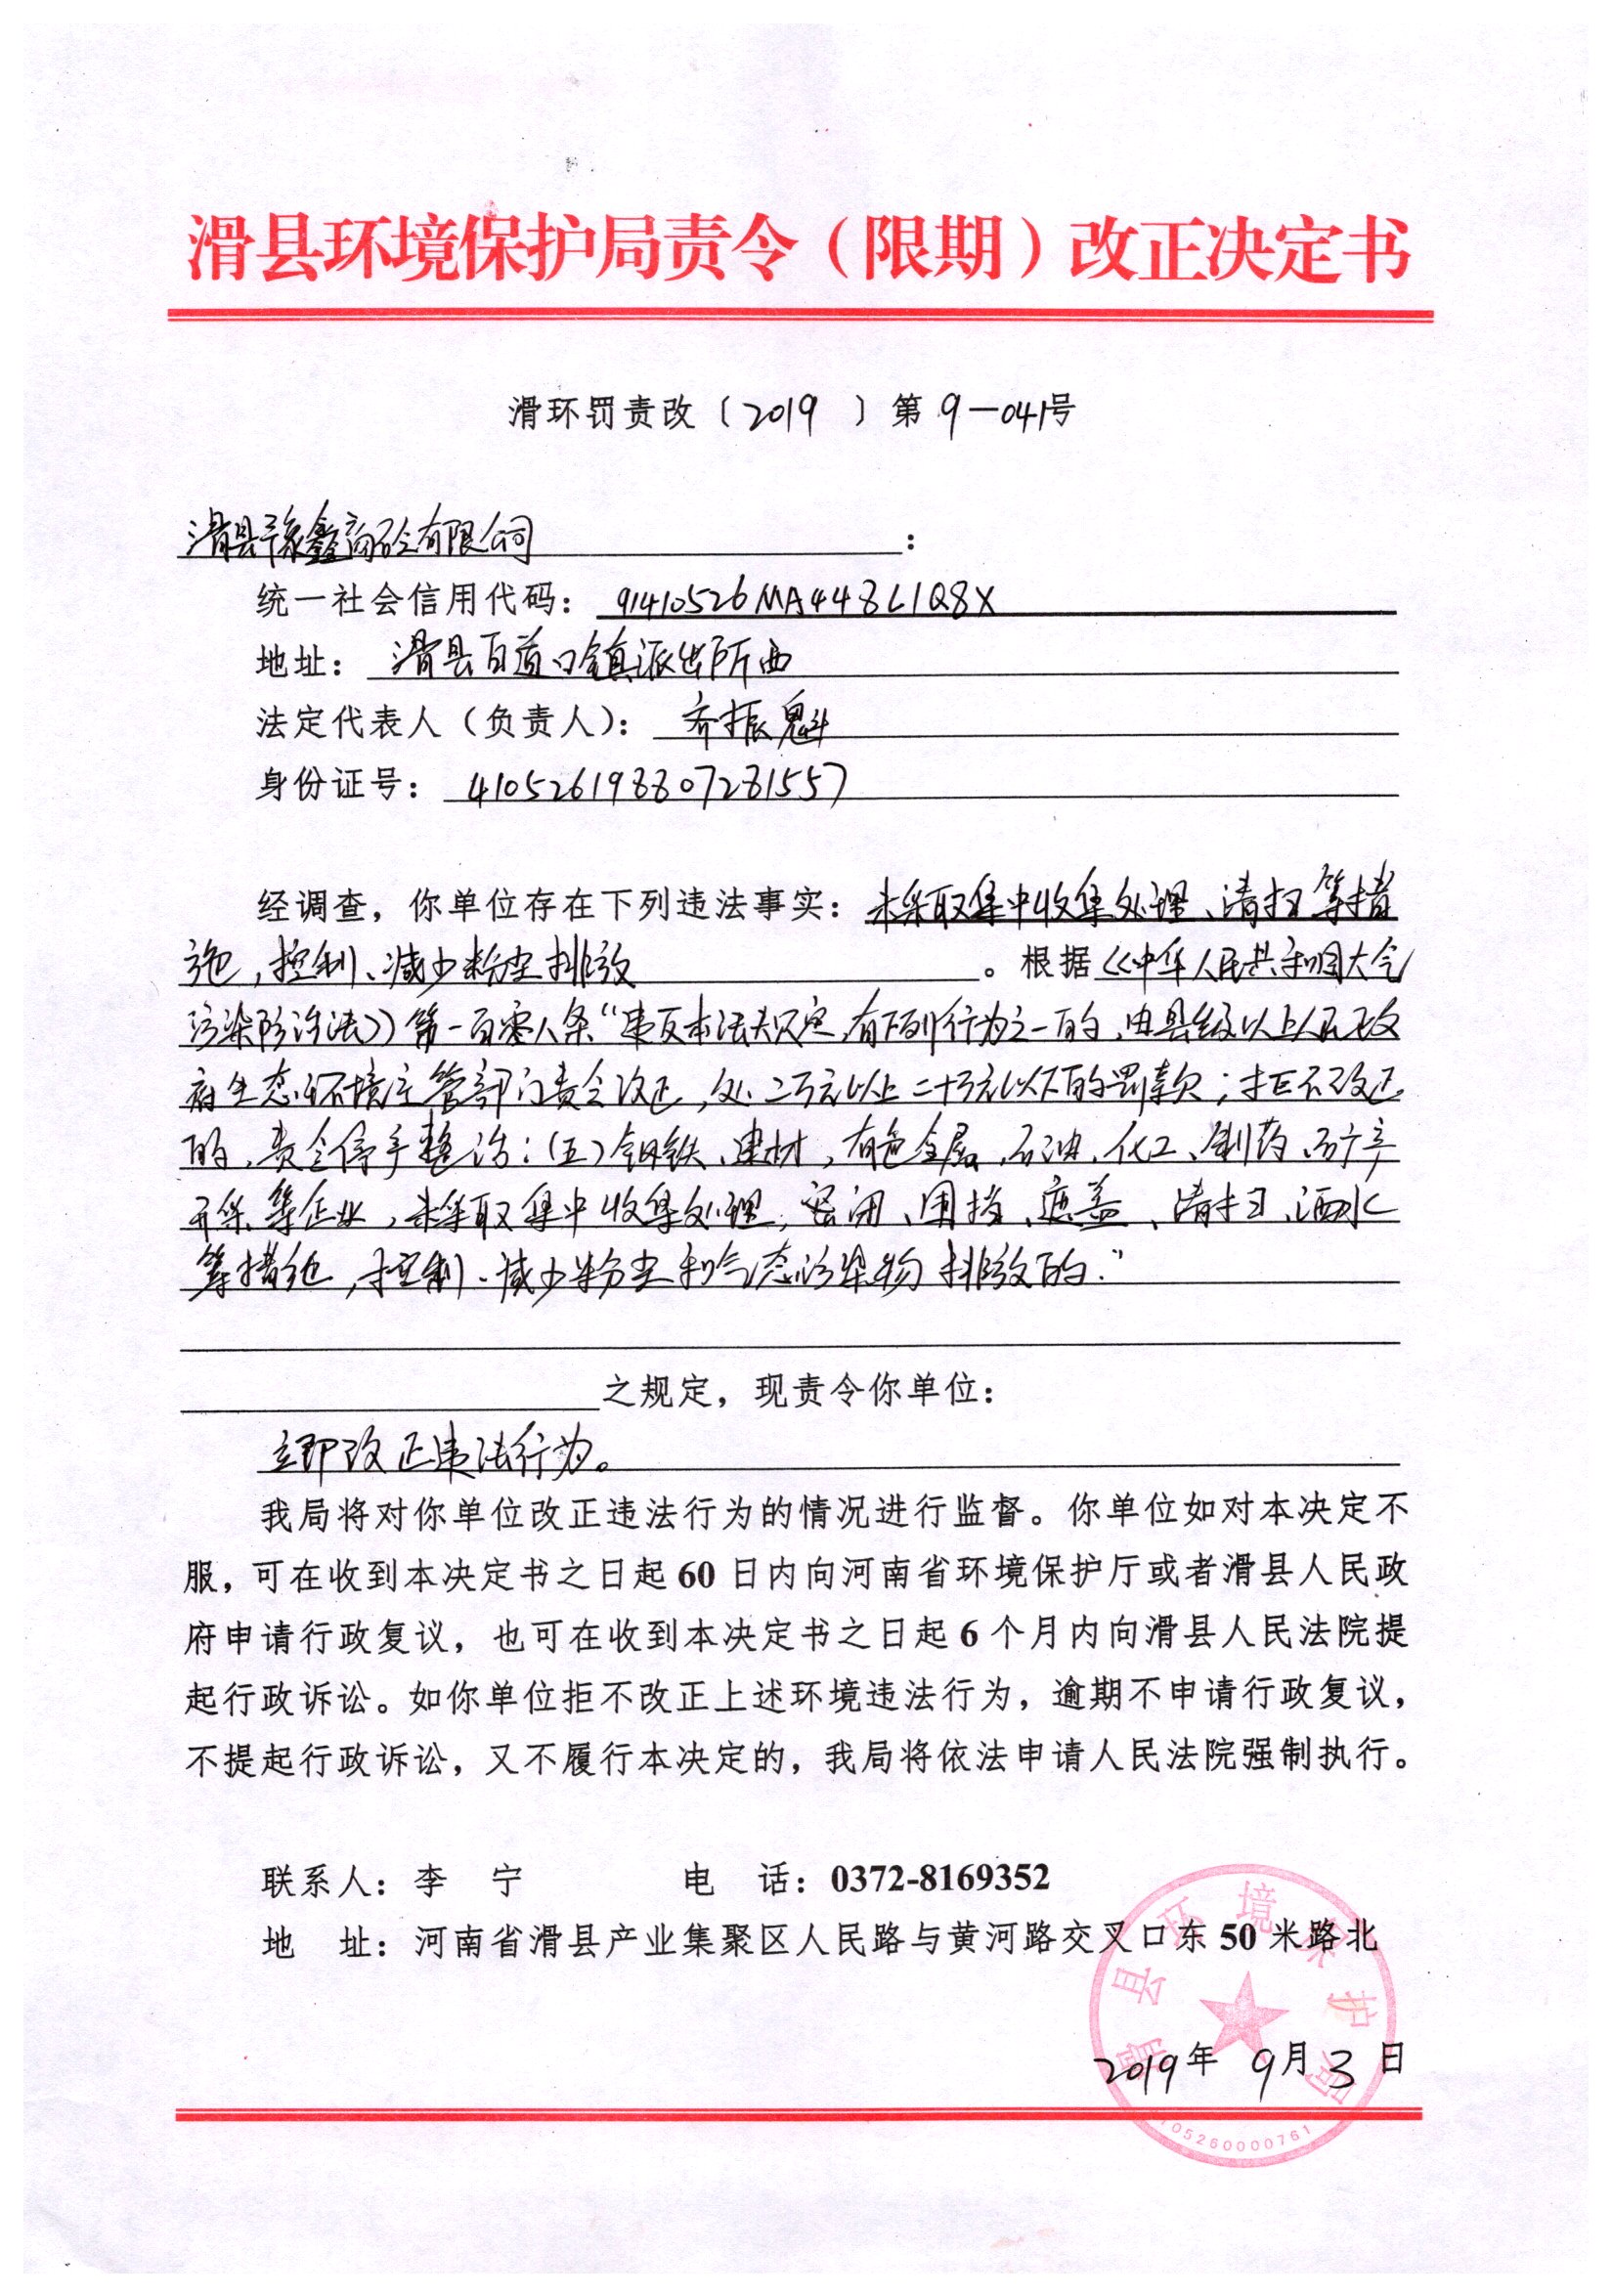 滑县环境保护局责令（限期）改正决定书
滑环罚责改〔2019 〕第9-041号
滑县豫鑫商砼有限公司：
统一社会信用代码：91410526MA448L1Q8X
地址：滑县百道口镇派出所西
法定代表人（负责人）：乔振魁
身份证号：410526198807281557
经调查，你单位存在下列违法事实：未采取集中收集处理、清扫等措
施，控制、减少粉尘排放。根据《中华人民共和国大气
污染防治法》第一百零八条“违反本法规定，有下列行为之一的，由县级以上人民政
府生态环境主管部门责令改正，处二万元以上二十万元以下的罚款；拒不改正
的，责令停产整治：（五）钢铁、建材、有色金属、石油、化工、制药、矿产
开采等企业，未采取集中收集处理、密闭、围挡、遮盖、清扫、洒水
等措施，控制、减少粉尘和气态污染物排放的.”
之规定，现责令你单位：
立即改正违法行为。
我局将对你单位改正违法行为的情况进行监督。你单位如对本决定不
服，可在收到本决定书之日起60日内向河南省环境保护厅或者滑县人民政
府申请行政复议，也可在收到本决定书之日起6个月内向滑县人民法院提
起行政诉讼。如你单位拒不改正上述环境违法行为，逾期不申请行政复议，
不提起行政诉讼，又不履行本决定的，我局将依法申请人民法院强制执行。
联系人：李 宁 电 话：0372-8169352
地 址：河南省滑县产业集聚区人民路与黄河路交叉口东50米路北
滑县环境保护局
2019年9月3日
105260000761